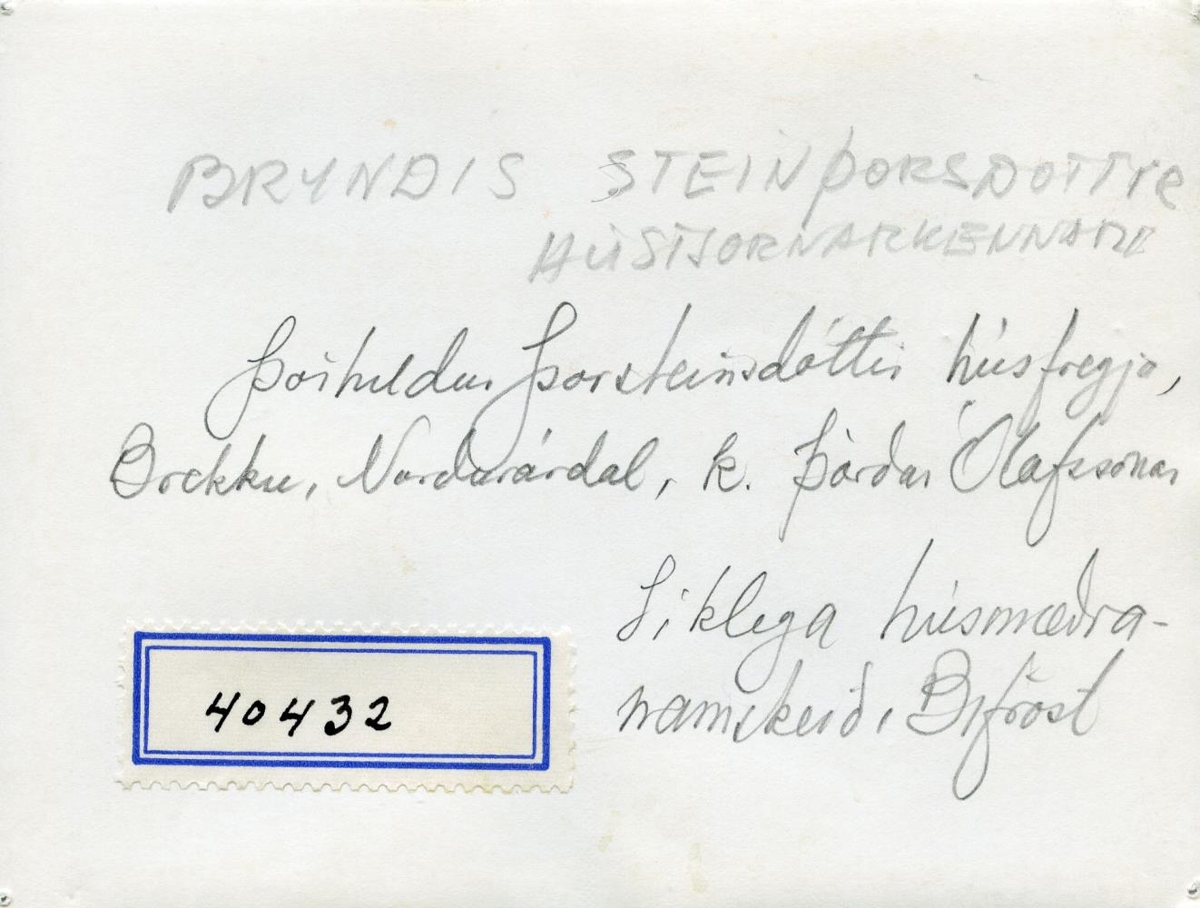 BRYNDIS STEINÞORSDOTTIR
HÚSTJORNARKENNARI
Þórhildur Þorsteinsdóttir húsfreyja,
Brekku, Norðurárdal, k. Þórðar Ólafssonar
Líklega húsmæðra-
námskeið, Bifröst
40432